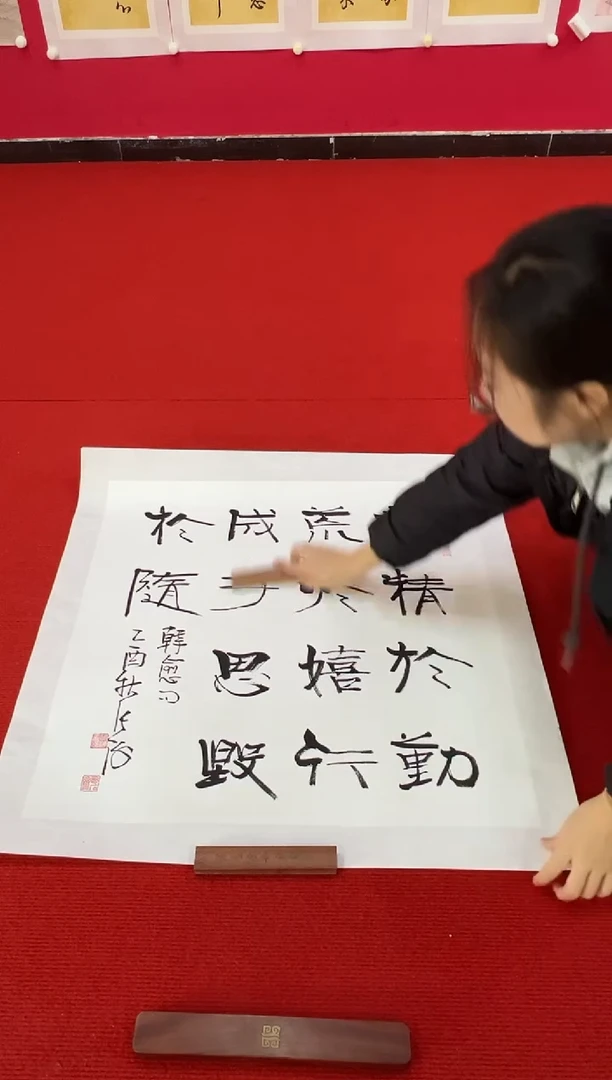 精於勤
荒於嬉行
成于思毀
於隨
韓愈句
乙酉秋